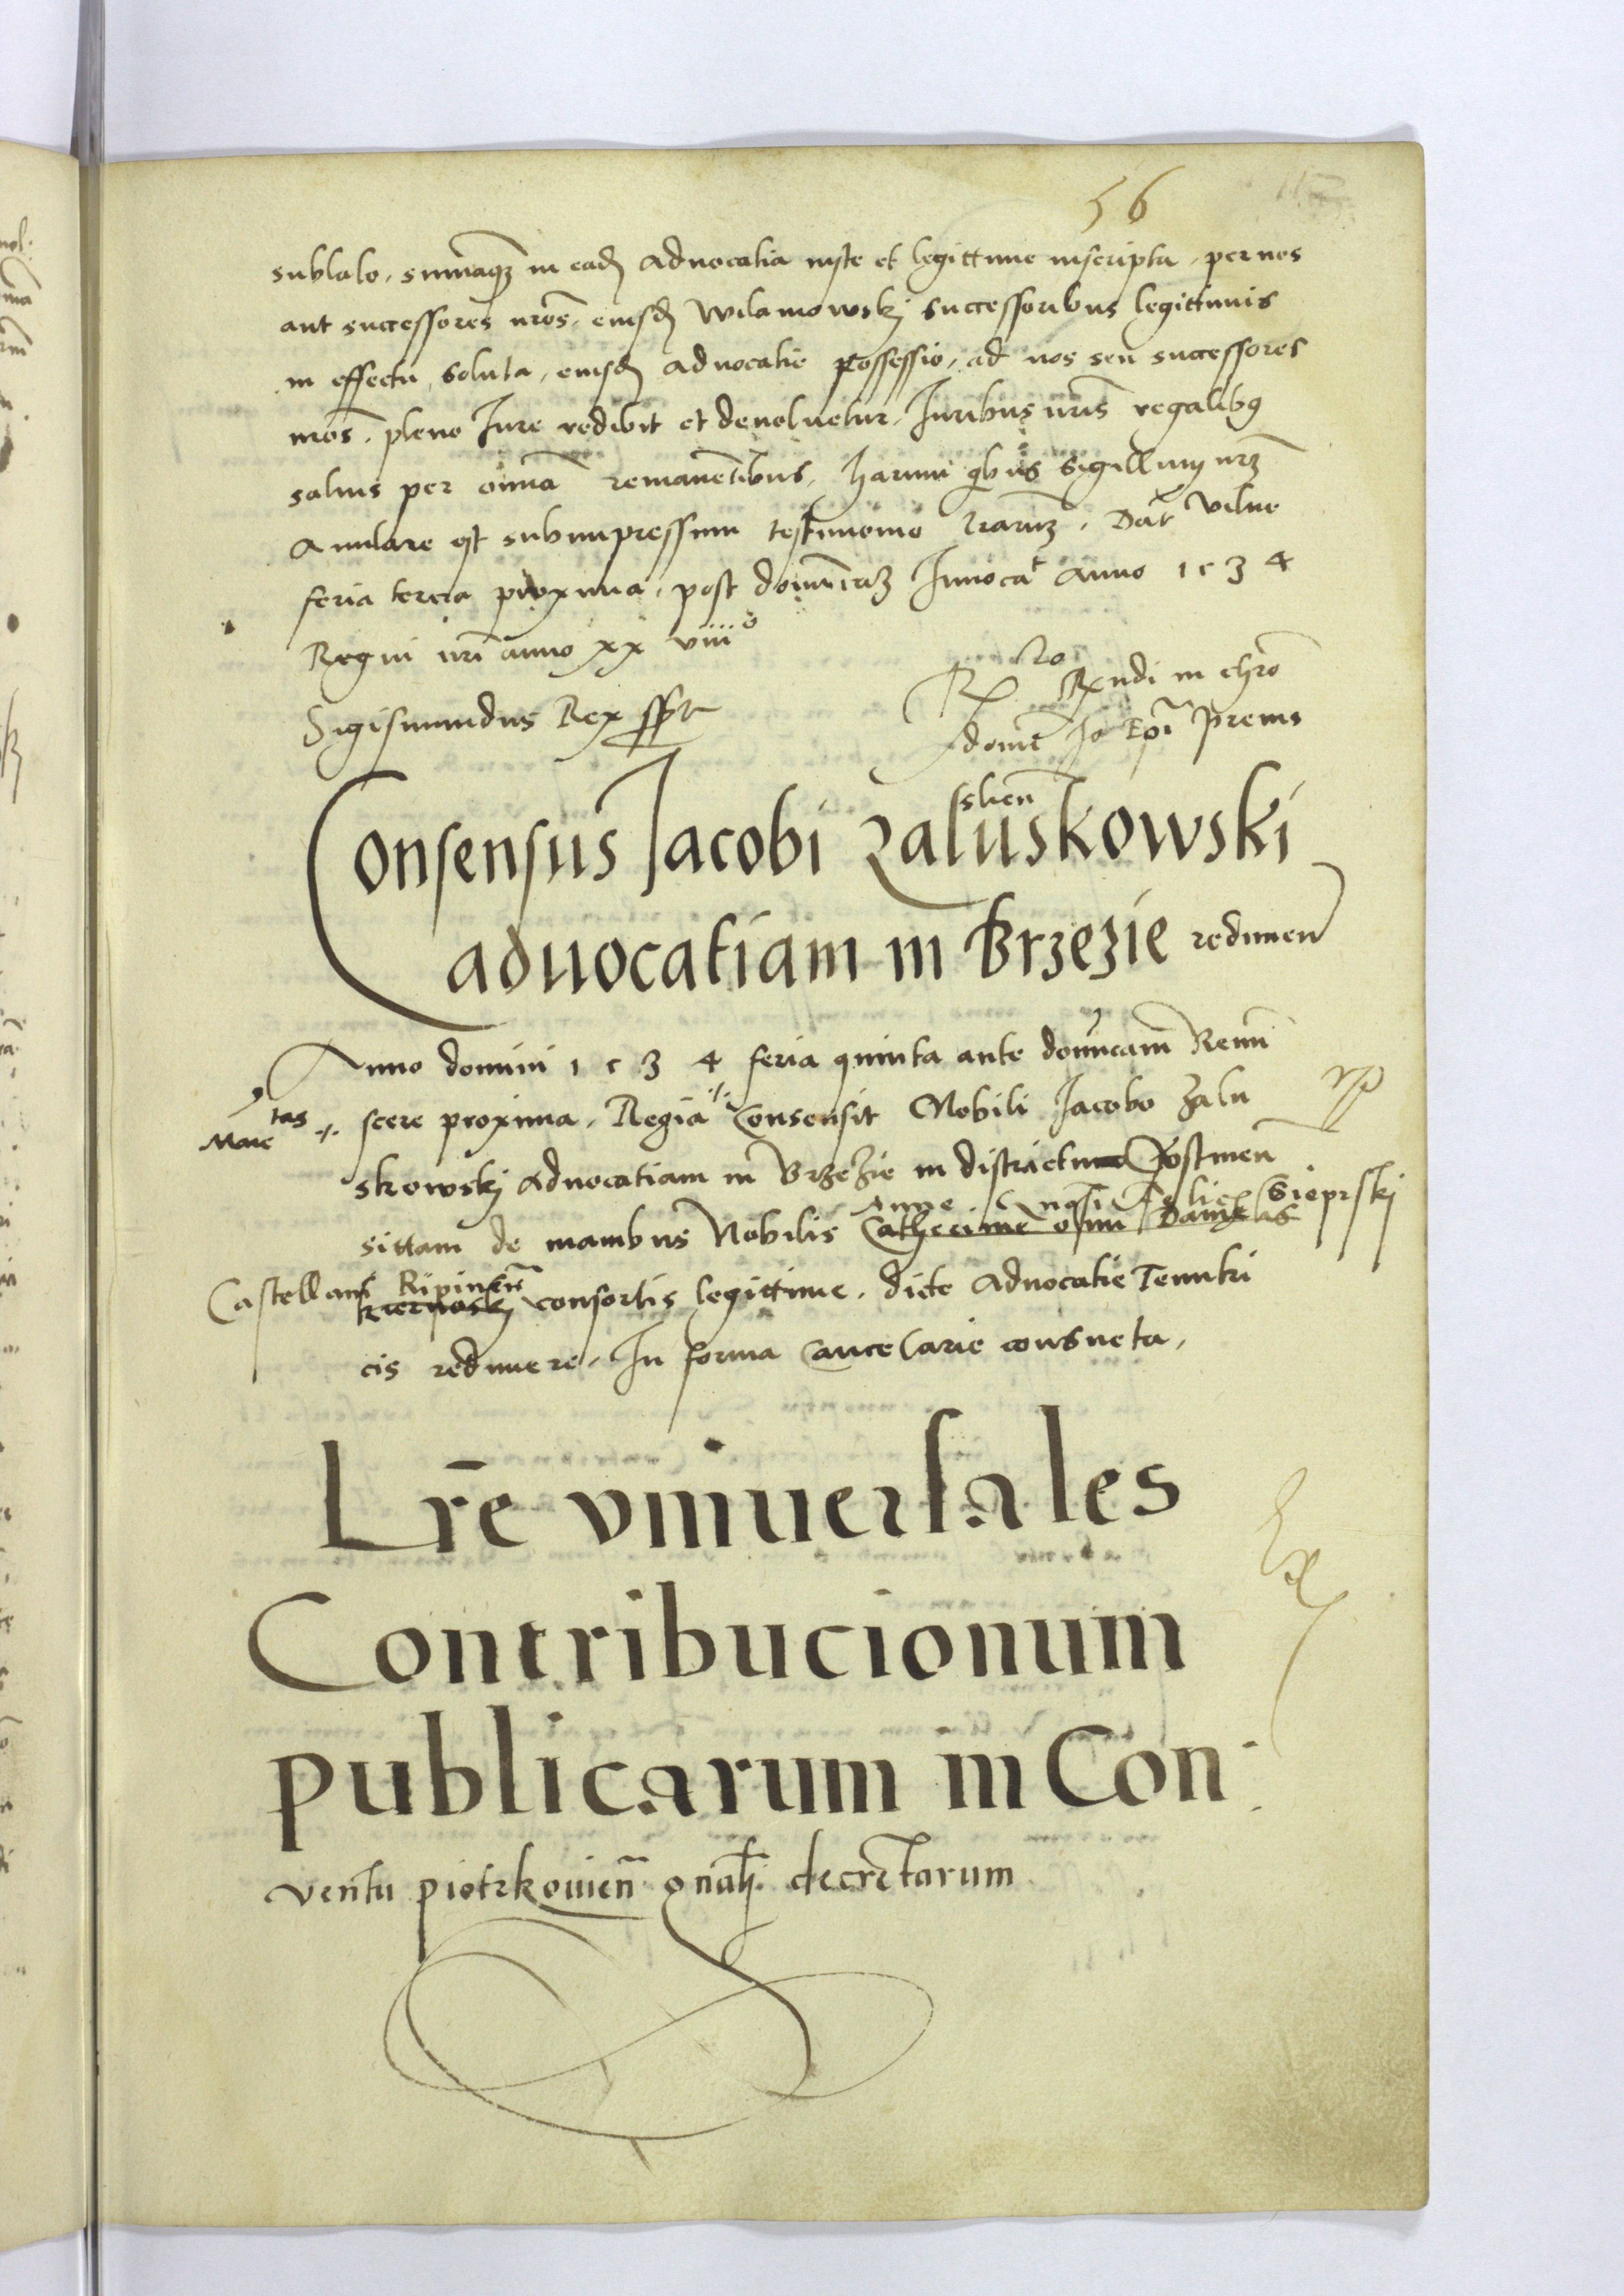 56
sublato, summaqȝ in eadꝫ advocatia iuste et legittime inscripta, per nos
aut successores nros, eiusdꝫ Wilamowskj successoribus legittimis
in effectu soluta, eiusdꝫ advocatie possessio, ad nos seu successores
nros, pleno Jure redibit et devoluetur, Juribus nris regalibꝰ
salvis per omnia remanetibus, harum qbus sigillum nrȝ
Anulare est subimpressum testimonio lrarumȝ, Dat Vilne
feria tercia proxima, post dominicaȝ Invocat anno 1534
Regni nri anno xx viii°
Sigismundus Rex sspt
Ro Rxndi in chro
domi Jo Epi Prems
lien
Consensus Jacobi Zaluskowski
advocatiam in Brzezie redimen
Anno domini 1 5 3 4 feria quinta ante dominicam Remi
Maie tas
scere proxima, Regia Consensit Nobili Jacobo Zalu
skowskj Advocatiam in Brzezie in districtu
Anne Sieprskj
sittam de manibus Nobilis Catherine Danielis
Castellani Ripinen
consortis legittime, dicte Advocatie Tenutri
cis redimere, In forma Cancelarie consueta,
Lre vniuersales
Contribucionum
publicarum in Con
ventu piotrkovien gnali decretarum